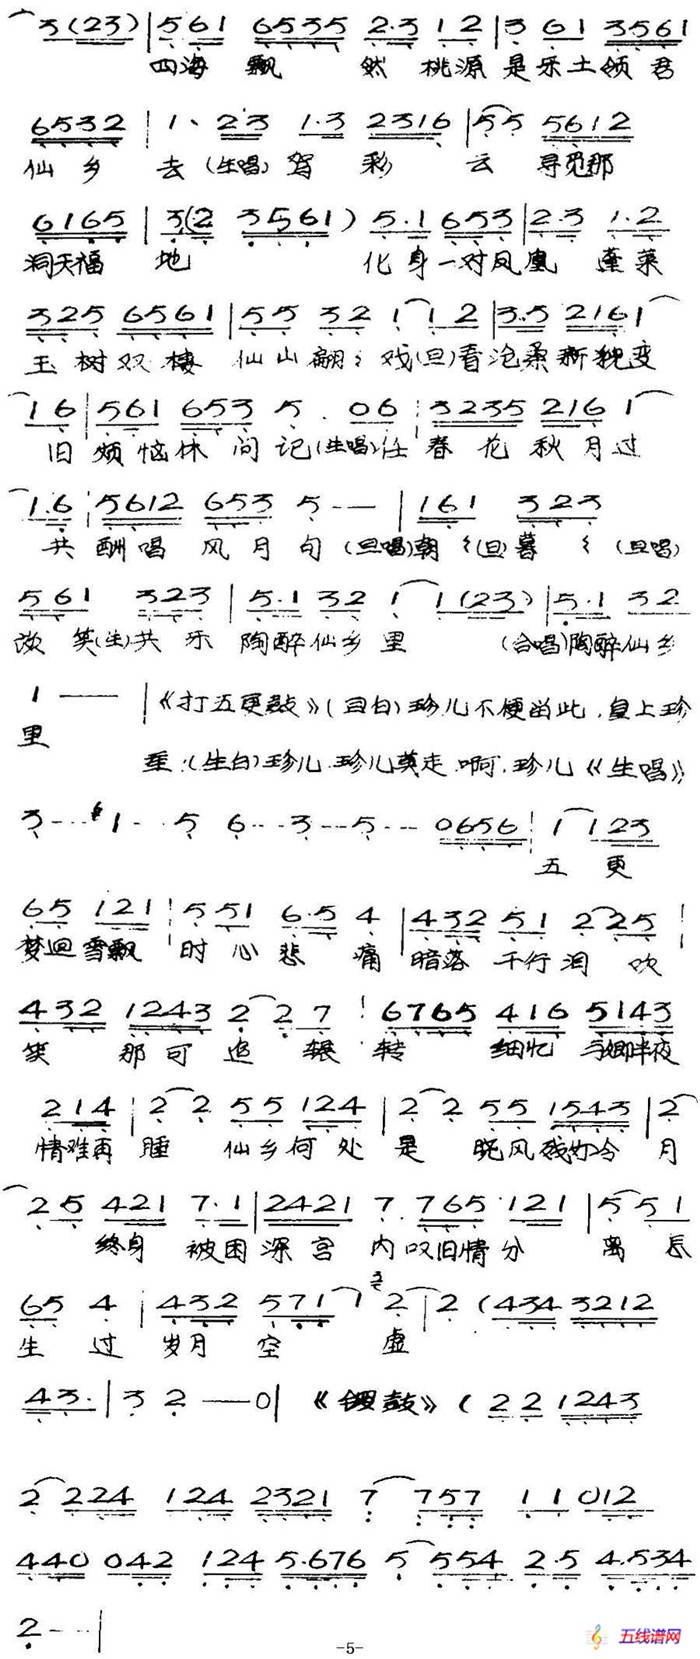 3(23) | 561 6535 2·3 12 | 3 61 3561
四海 飘 然 桃源 是乐土领君
6532 | 1、 23 1·3 2316 | 55 5612
仙乡 去(生唱)驾 彩 云 寻觅那
6165 | 3(2 3561) 5·1 653 | 2·3 1·2
洞天福 地 化身一对凤凰 蓬莱
325 6561 | 55 32 1 12 | 3·5 2161
玉树双栖 仙山翩〻戏(旦)春沧桑新蜕变
16 | 561 653 5 · 06 | 3235 216 1
旧烦恼休 问记(生唱)任 春花秋月过
1·6 | 5612 653 5 — — | 161 323
共酬唱 风月句 (旦唱)朝〻(旦)暮〻 (旦唱)
561 323 | 5·1 32 1 1(23) | 5·1 32
欢笑(生)共乐 陶醉仙乡里 (合唱)陶醉仙乡
1 — — | 《打五更鼓》(旦白)珍儿不便留此，皇上珍
里
重.(生白)珍儿.珍儿莫走.啊.珍儿《生唱》
3--- 1-- 5 6---3---5--- 0656 | 1 123
五更
65 121 | 551 6·5 4 | 432 51 225
梦回雪飘 时心悲 痛 暗落 千行泪 欢
432 1243 2 27 | 6765 416 5143
笑 那可追 辗 转 细忆 与卿半夜
214 | 2 2 55 124 | 2 2 55 1543 | 2
情难再 睡 仙乡何处 是 晓风残如今 月
25 421 7·1 | 2421 7 765 121 | 5 51
终身 被困深宫 内叹旧情分 离 长
65 4 | 432 571 1 2 | 2 (434 3212
生 过 岁月 空 虚
43· | 3 2 — — 0 | 《锣鼓》 ( 22 1243
2 224 124 2321 7 757 11 012
440 042 124 5·676 5 554 2·5 4·534
2 — — |
-5-
五线谱网